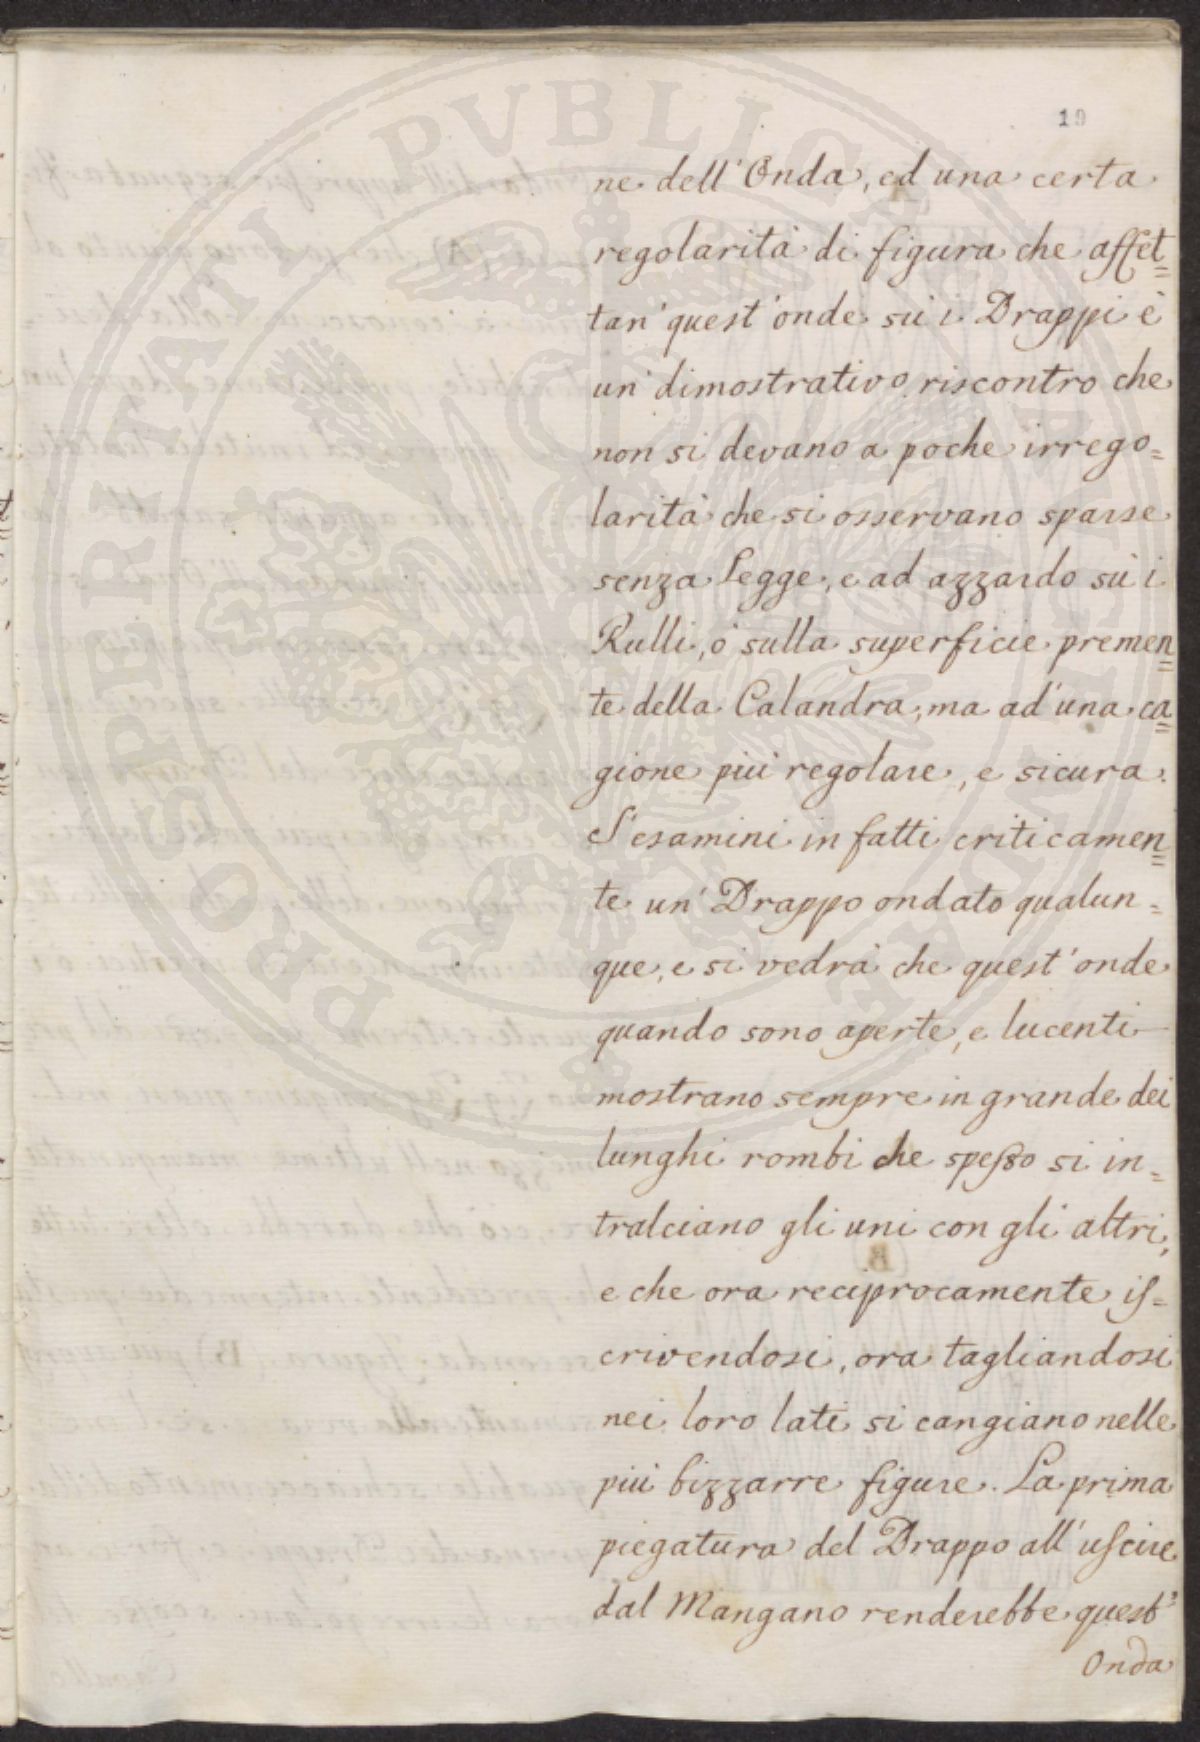 19
ne dell' Onda, ed una certa
regolarità di figura che affet=
tan' quest' onde sù i Drappi è
un' dimostrativo riscontro che
non si devano a poche irrego=
larità che si osservano sparse
senza legge, e ad azzardo sù i
Rulli, ò sulla superficie premen=
te della Calandra, ma ad' una ca=
gione più regolare, e sicura.
S'esamini in fatti criticamen=
te un' Drappo ondato qualun=
que, e si vedrà che quest' onde
quando sono aperte, e lucenti
mostrano sempre in grande dei
lunghi rombi che speſso si in=
tralciano gli uni con gli altri,
e che ora reciprocamente iſ=
crivendosi, ora tagliandosi
nei loro lati si cangiano nelle
più bizzarre figure. La prima
piegatura del Drappo all' uſcire
dal Mangano renderebbe quest'
Onda
PROSPERITATI PVBLICAE AVGENDAE